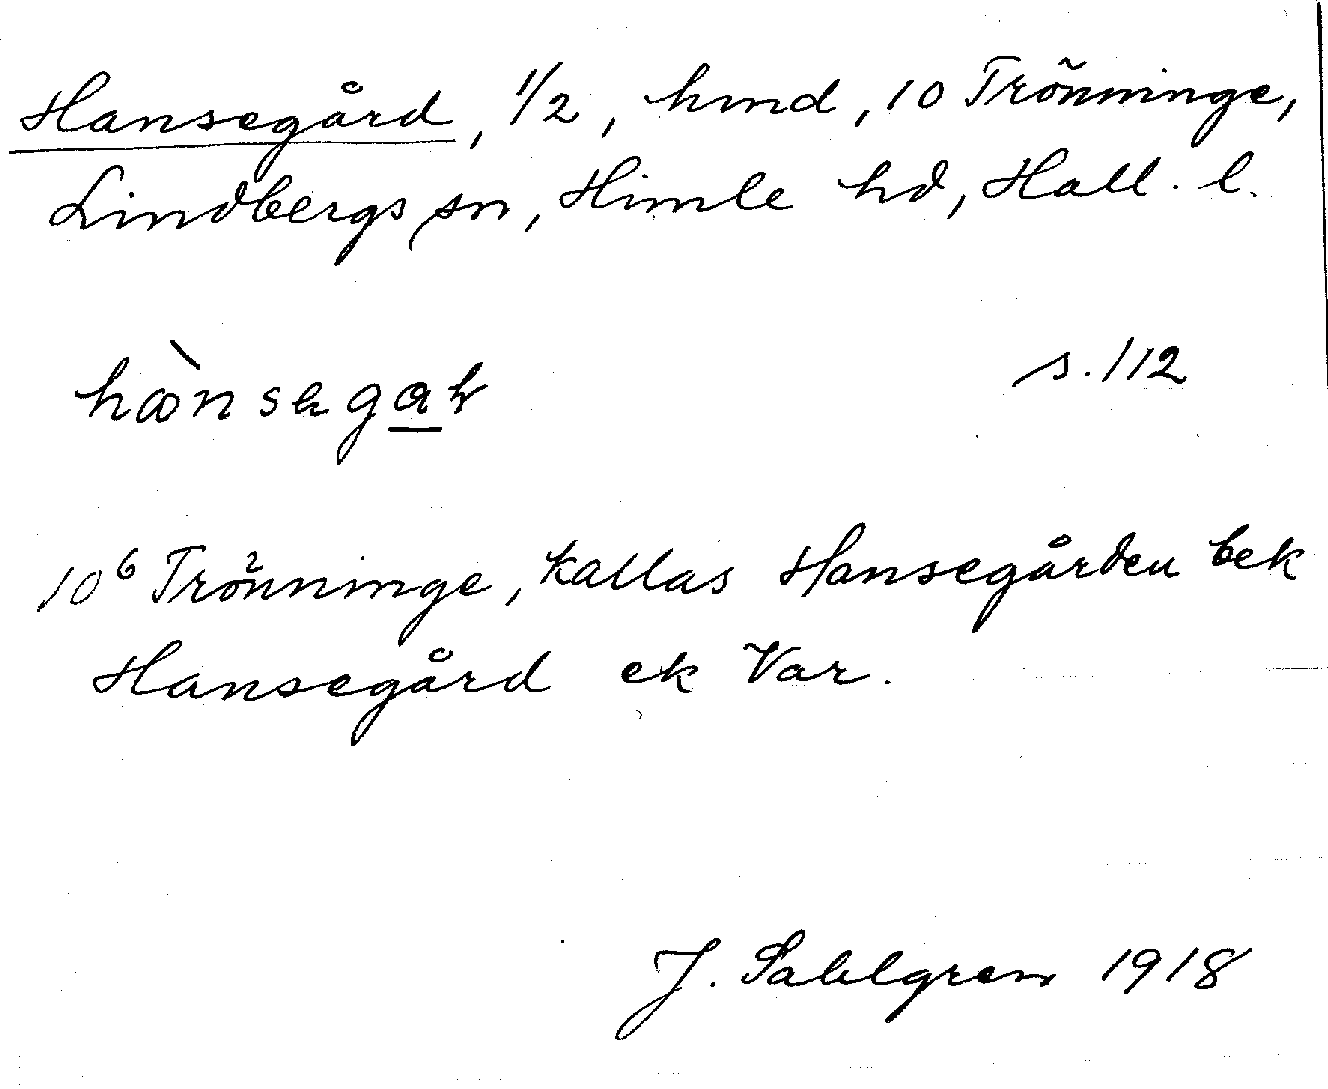 Hansegård, 1/2, hmd, 10 Trönninge,
Lindbergs sn, Himle hd, Hall. l.
s. 112
10⁶ Trönninge, kallas Hansegården bek
Hansegård ek Var.
J. Sahlgren 1918